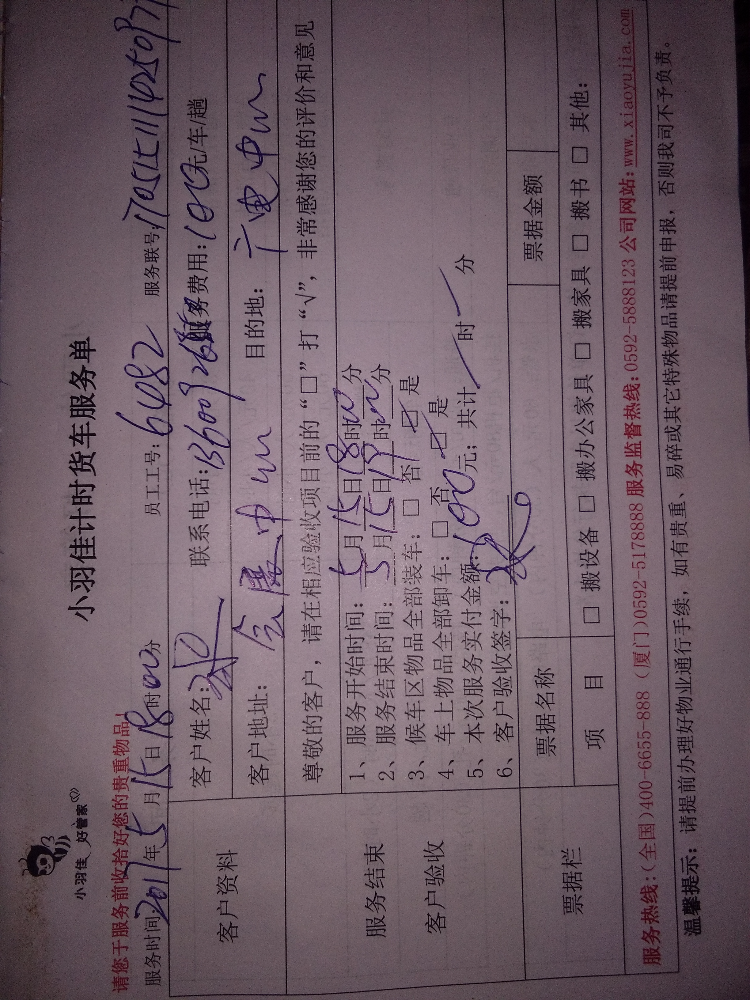 小羽佳 好管家
小羽佳计时货车服务单
请您于服务前收拾好您的贵重物品!
服务时间:2017年5月15日18时00分 员工工号:6482 服务联号:
客户资料
客户姓名: 联系电话: 服务费用:100元/车/趟
客户地址:会展中心 目的地:广电中心
尊敬的客户，请在相应验收项目前的“□”打“√”，非常感谢您的评价和意见
服务结束
客户验收
1、服务开始时间:5月15日18时00分
2、服务结束时间:5月15日19时00分
3、候车区物品全部装车:□否 ☑是
4、车上物品全部卸车:□否 ☑是
5、本次服务实付金额:100元;共计 时 分
6、客户验收签字:
票据栏
票据名称 票据金额
项 目 □搬设备 □搬办公家具 □搬家具 □搬书 □其他:
服务热线:(全国)400-6655-888 (厦门)0592-5178888 服务监督热线:0592-5888123 公司网站:www.xiaoyujia.com
温馨提示:请提前办理好物业通行手续，如有贵重、易碎或其它特殊物品请提前申报，否则我司不予负责。